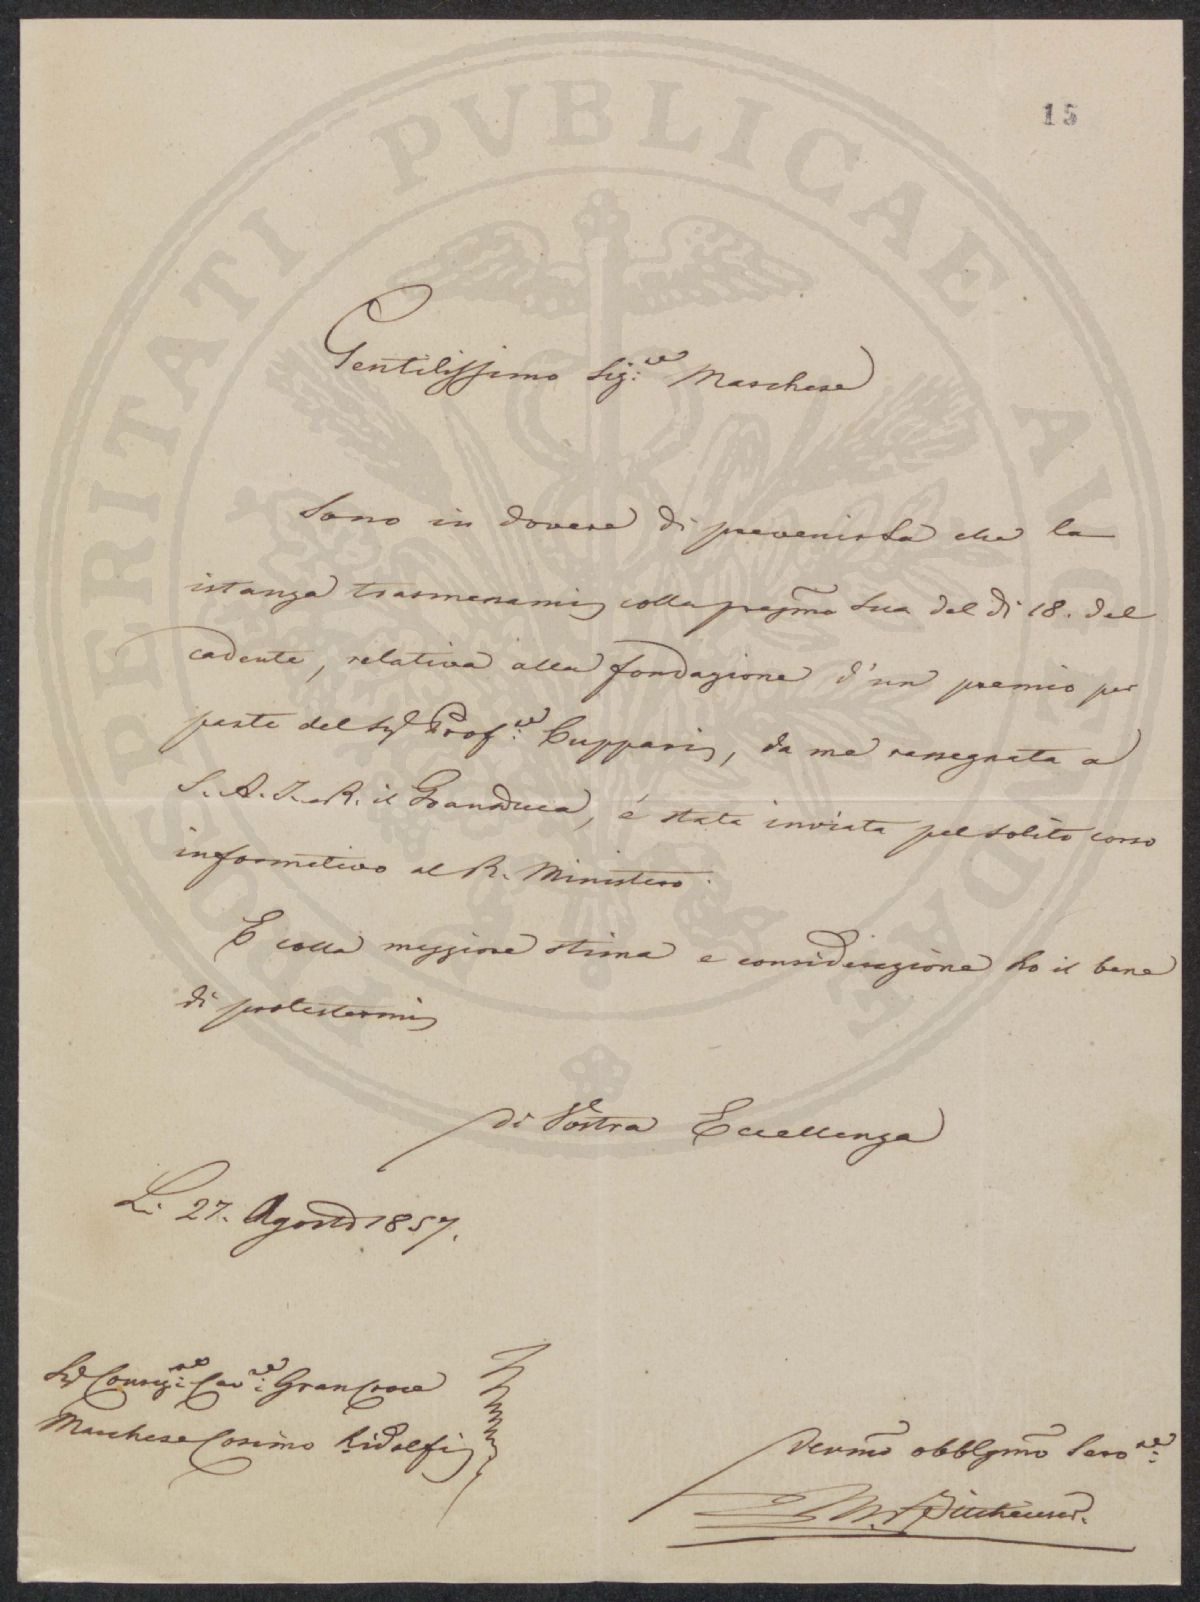 15
PROSPERITATI PVBLICAE AVGENDAE
Gentilissimo Sig:re Marchese
Sono in dovere di prevenirLa che la
istanza trasmessami colla pregma Sua del dì 18. del
cadente, relativa alla fondazione d'un premio per
parte del Sigr Prof:re Cuppari, da me rassegnata a
S. A. I. e R. il Granduca, é stata inviata pel solito corso
informativo al R. Ministero.
E colla maggiore stima e considerazione ho il bene
di protestarmi
Di Vostra Eccellenza
Li 27. Agosto 1857.
Sigr Consig:re Cav:re GranCroce
Marchese Cosimo Ridolfi
Devmo obblgmo Servo:re